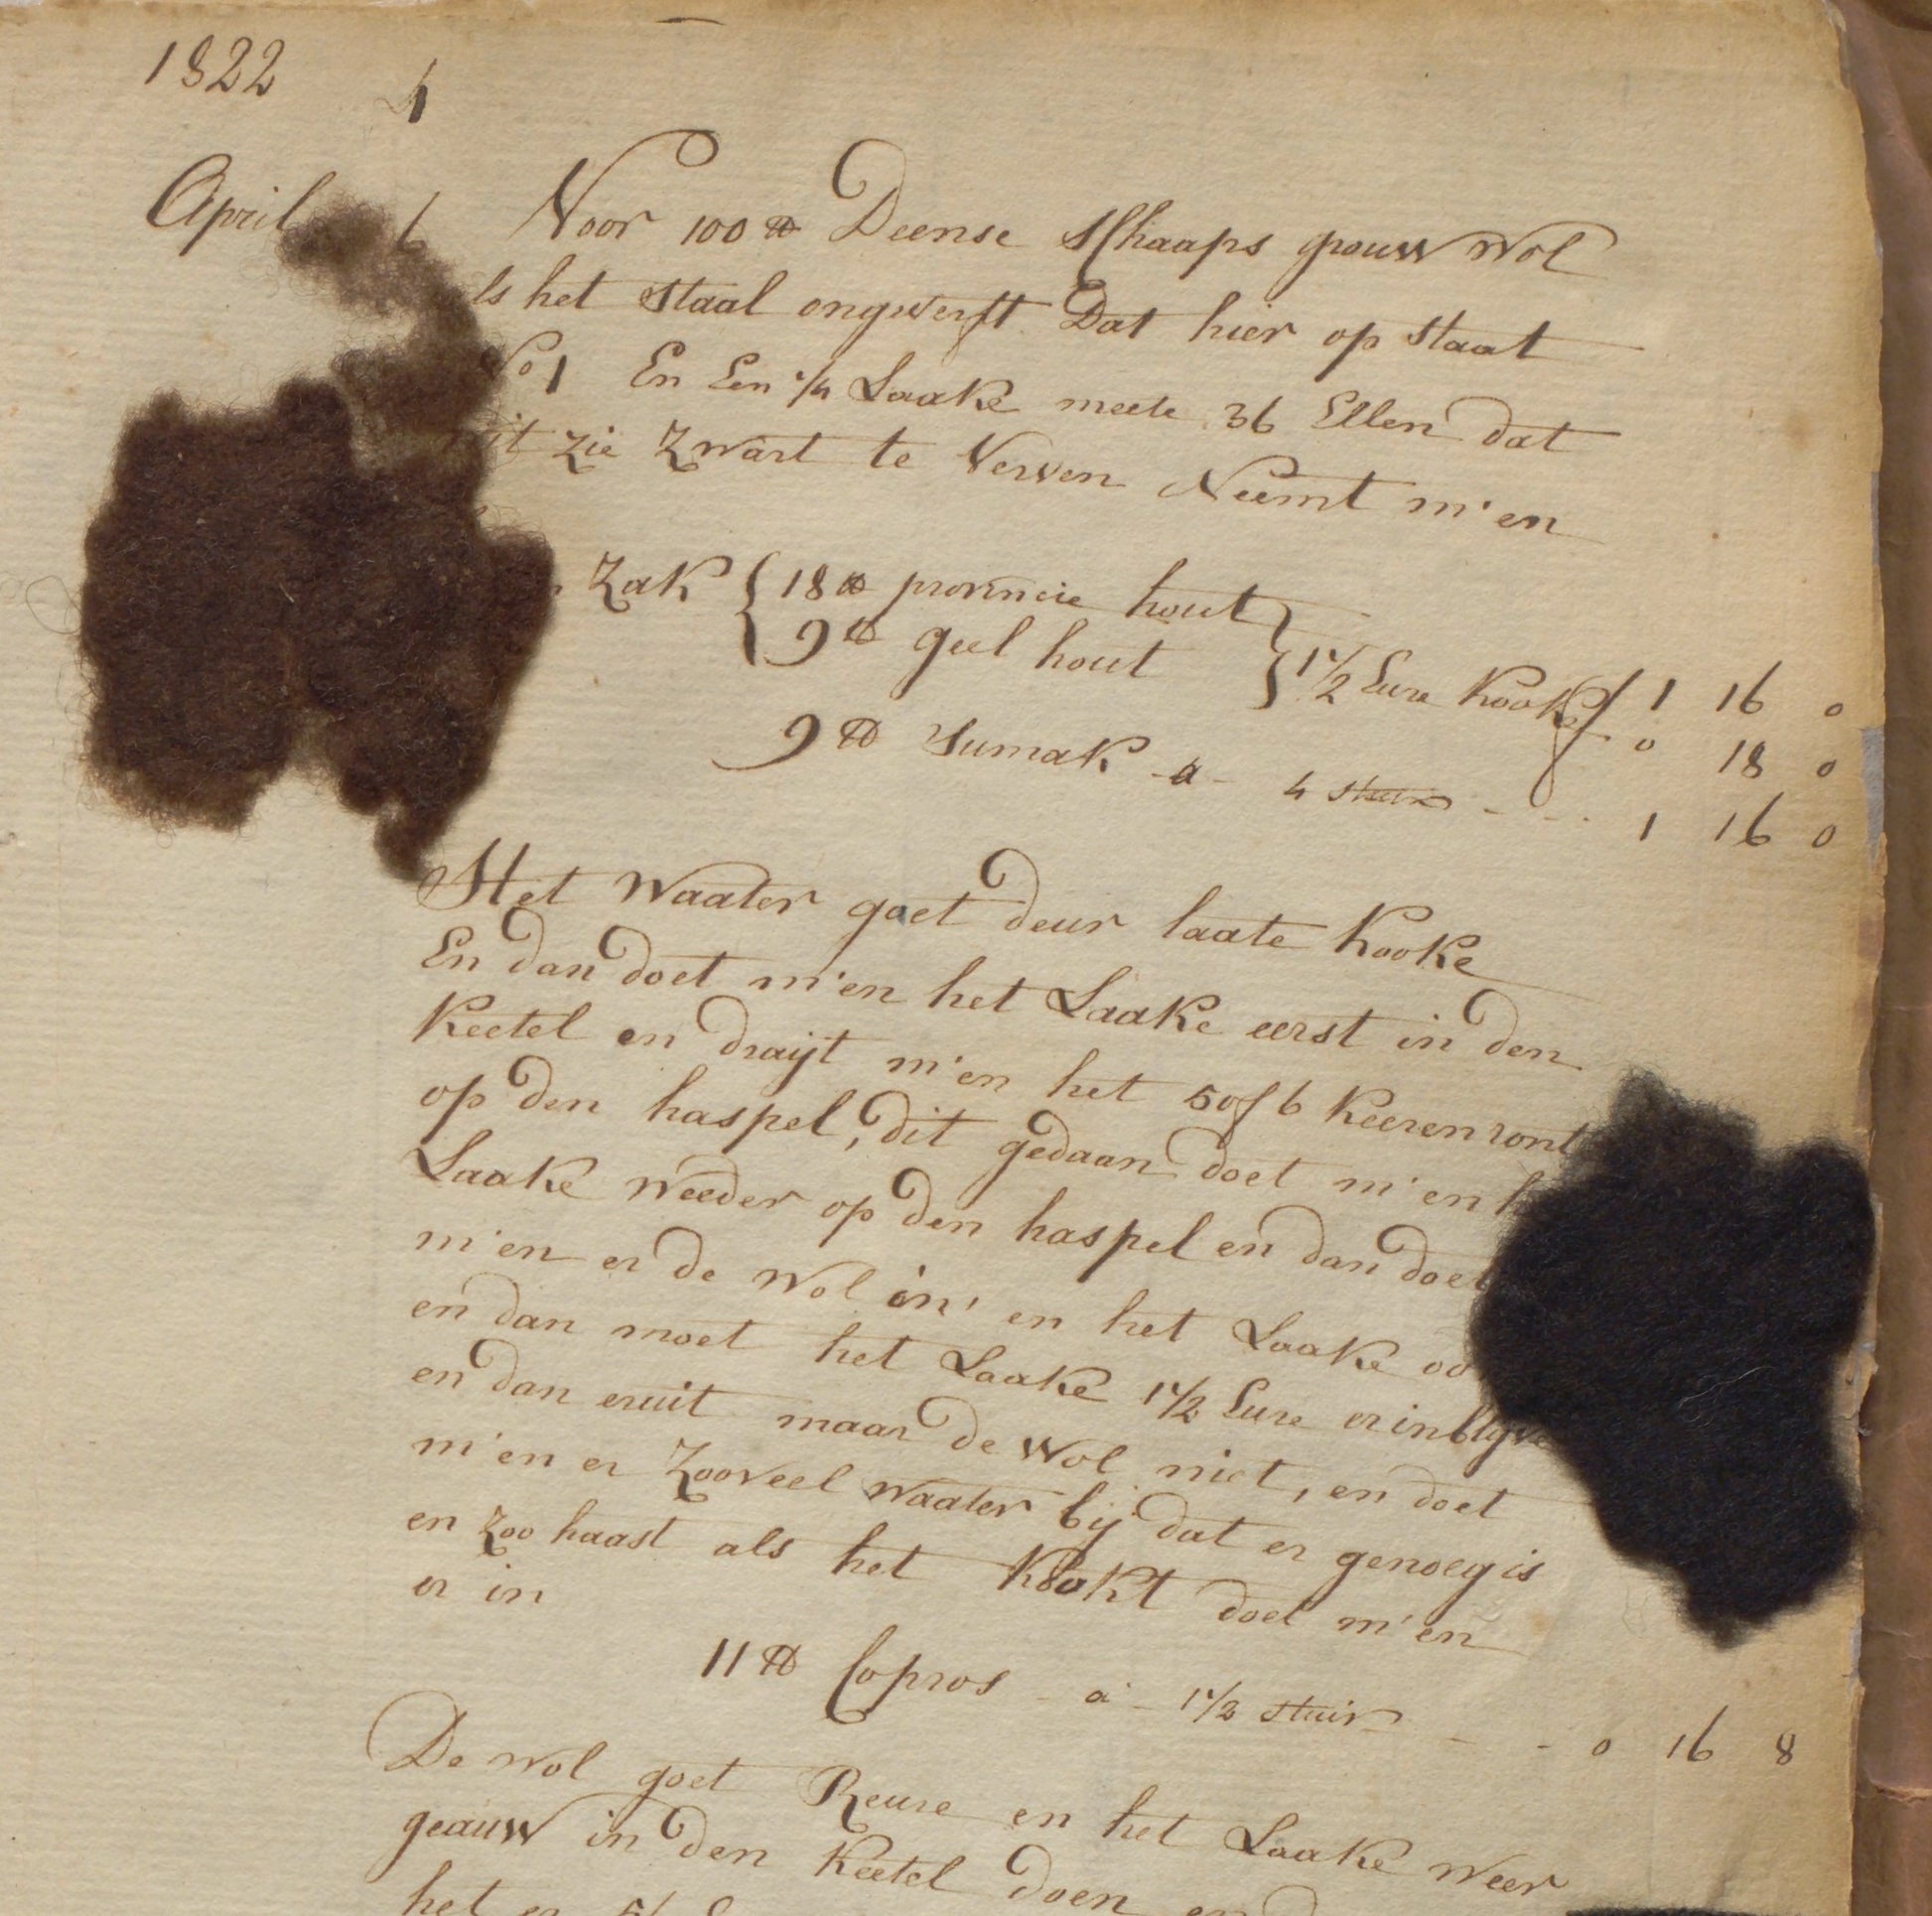 1822 4
April 6 Voor 100 ℔ Deense Schaaps grouw Wol
ls het Staal ongverft Dat hier op staat
No 1 En Een 1/4 Laake meete 36 Ellen dat
it zie Zwart te Verven Neemt m'en
Zak { 18 ℔ provincie hout
9 ℔ geel hout } 1 1/2 Eure Kooke f 1 16 0
0 18 0
9 ℔ Sumak a 4 stuiv - - - 1 16 0
Het Waater goet deur laate Kooke
En dan doet m'en het Laake eerst in den
Keetel en draijt m'en het 5 of 6 Keeren ront
op den haspel, dit gedaan doet m'en h
Laake Weeder op den haspel en dan doet
m'en er de Wol in, en het Laake oo
en dan moet het Laake 1 1/2 Eure er in blijve
en dan eruit maar de Wol niet, en doet
m'en er Zooveel Waater bij dat er genoeg is
en Zoo haast als het Kookt doet m'en
er in
11 ℔ Copros - a - 1 1/2 stuiv - - 0 16 8
De Wol goet Reure en het Laake Weer
geauw in den Keetel doen
het er